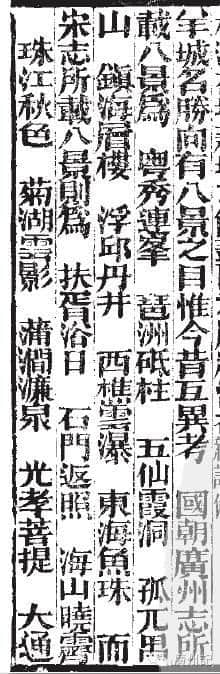 羊城名勝向有八景之目惟今昔互異考 國朝廣州志所
載八景爲 粵秀連峯 琶洲砥柱 五仙霞洞 孤兀禺
山 鎮海層樓 浮邱丹井 西樵雲瀑 東海魚珠 而
宋志所載八景則爲 扶胥浴日 石門返照 海山曉霽
珠江秋色 菊湖雲影 蒲澗濂泉 光孝菩提 大通